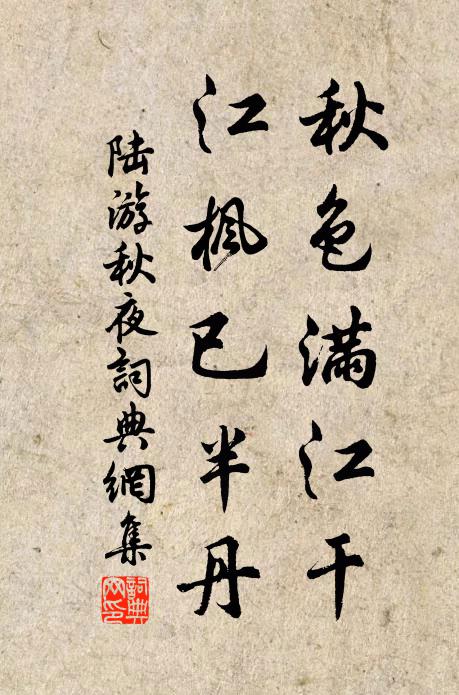 秋色满江干
江枫已半丹
陆游秋夜詞典網集
詞典网印